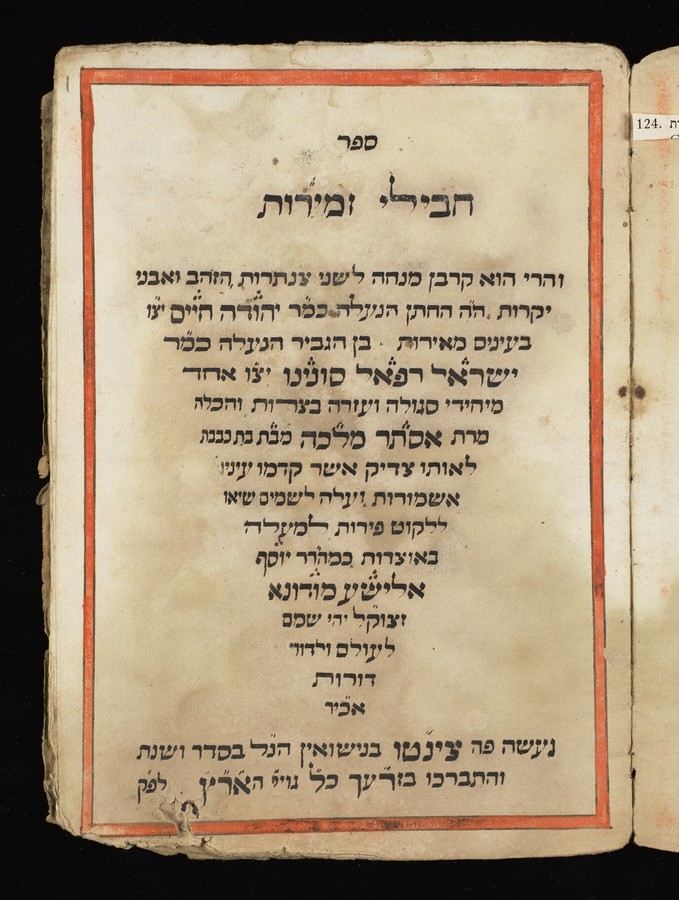 ספר
חבילי זמירות
והרי הוא קרבן מנחה לשני צנתרות הזהב ואבני
יקרות ה״ה החתן הנעלה כמ״ר יהודה חיים יצ״ו
בעינים מאירות בן הגביר הנעלה כמ״ר
ישראל רפאל סונינו יצ״ו אחד
מיחידי סגולה ועזרה בצרות והכלה
מרת אסתר מלכה מב״ת בת נכבת
לאותו צדיק אשר קדמו עיניו
אשמורות ועלה לשמים שיאו
ללקוט פירות למעלה
באוצרות כמוהר״ר יוסף
אלישע מודונא
זצוק״ל יהי שמם
לעולם ולדור
דורות
אכי״ר
נעשה פה צינטו בנישואין הנ״ל בסדר ושנת
והתברכו בזרעך כל גויי הארץ לפ״ק
124.